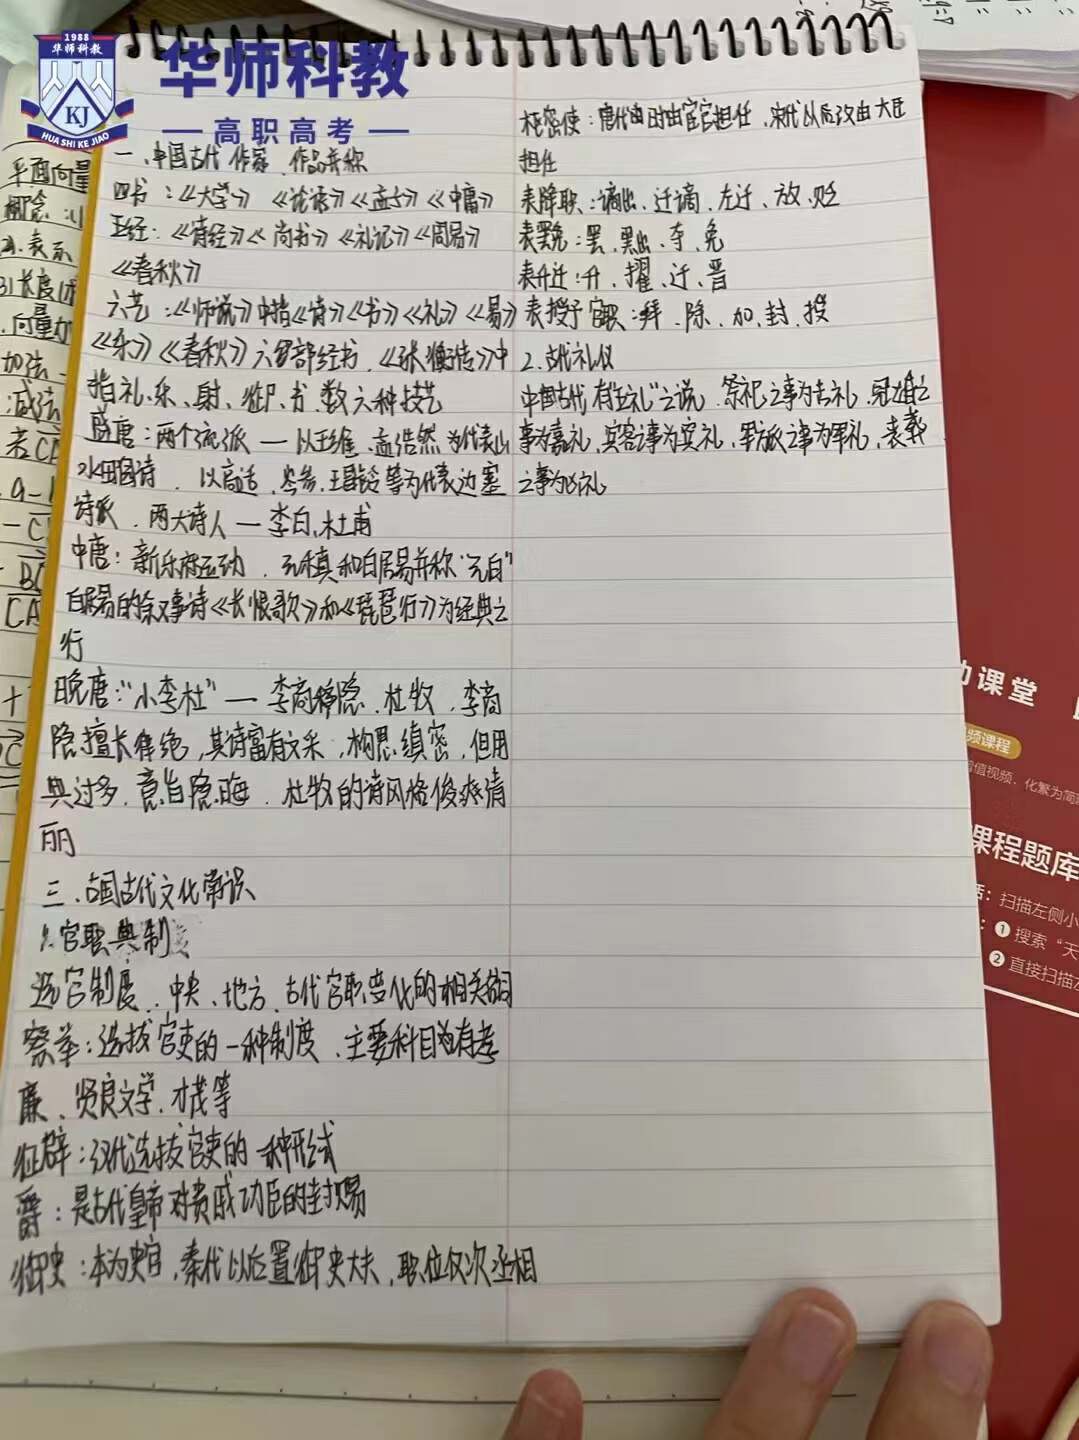 1988
华师科教
KJ
HUA SHI KE JIAO
华师科教
高职高考
一、中国古代作家、作品并称
四书：《大学》《论语》《孟子》《中庸》
五经：《诗经》《尚书》《礼记》《周易》
《春秋》
六艺：《师说》中指《诗》《书》《礼》《易》
《乐》《春秋》六部经书，《张衡传》中
指礼、乐、射、御、书、数六种技艺
盛唐：两个流派 — 以王维、孟浩然为代表山
水田园诗，以高适、岑参、王昌龄等为代表边塞
诗派，两大诗人 — 李白、杜甫
中唐：新乐府运动，元稹和白居易并称“元白”
白居易的叙事诗《长恨歌》和《琵琶行》为经典之
行
晚唐：“小李杜” — 李商隐、杜牧，李商
隐擅长律绝，其诗富有文采，构思缜密，但用
典过多，意旨隐晦，杜牧的诗风格俊爽清
丽
三、古国古代文化常识
1.官职典制
选官制度、中央、地方、古代官职变化的相关词
察举：选拔官吏的一种制度，主要科目有孝
廉、贤良文学、才茂等
征辟：汉代选拔官吏的一种形式
爵：是古代皇帝对贵戚功臣的封赐
御史：本为史官，秦代以后置御史大夫，职位仅次丞相
枢密使：唐代由时由宦官担任，宋代以后改由大臣
担任
表降职：谪出、迁谪、左迁、放、贬
表罢免：罢、黜、夺、免
表升迁：升、擢、迁、晋
表授予官职：拜、除、加、封、授
2.古代礼仪
中国古代有“五礼”之说，祭祀之事为吉礼，冠婚之
事为嘉礼，宾客之事为宾礼，军旅之事为军礼，丧葬
之事为凶礼
平面向量
概念
表示
长度
向量加
加法
减法
CA
动课堂
频课程
增值视频，化繁为简
课程题库
扫描左侧小
❶ 搜索“天
❷ 直接扫描左